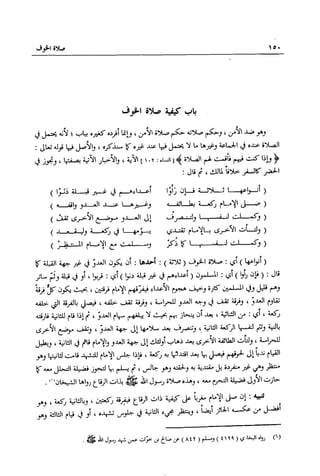 ١٥٠ صلاة الخوف
باب كيفية صلاة الخوف
وهو ضد الأمن ، وحكم صلاته حكم صلاة الأمن ، وإنما أفرده كغيره بباب ؛ لأنه يحتمل في
الصلاة عنده في الجماعة وغيرها ما لا يحتمل فيها عند غيره كما سنذكره ، والأصل فيها قوله تعالى :
﴿ وإذا كنت فيهم فأقمت لهم الصلاة ﴾ [النساء: ١٠٢] الآية ، والأخبار الآتية بصفتها ، وتجوز في
الحضر كالسفر خلافاً لمالك ، ثم قال :
( أنواعها ثلاثة فإن رَأَوْا أعداءهم في غير قبلة دَنَوْا )
( صلى الإمام ركعة بطائفه وغيرها عند العدو واقفه )
( وكملت لنفسها وتنصرف إلى العدو موضع الأخرى تقف )
( ولتأت الأخرى بالإمام تقتدي يؤمها في ركعة وليقعد )
( وكملت لنفسها كما ذكر وسلمت مع الإمام المنتظر )
( أنواعها ) أي : صلاة الخوف ( ثلاثة ) : أحدها : أن يكون العدو في غير جهة القبلة كما
قال : ( فإن رأوا ) أي : المسلمون ( أعداءهم في غير قبلة دنوا ) أي : قربوا ، أو في قبلة وثم ساتر
وهم قليل وفي المسلمين كثرة وخيف هجوم الأعداء فيفرقهم الإمام فرقتين ، بحيث يكون كل فرقة
تقاوم العدو ، وفرقة تقف في وجه العدو للحراسة ، وفرقة تقف خلفه ، فيصلي بالفرقة التي خلفه
ركعة ، أي : من الثنائية ، بعد أن ينحاز بهم بحيث لا يبلغهم سهام العدو ، ثم إذا قام للثانية فارقته
بالنية وتتم لنفسها الركعة الثانية ، وتنصرف بعد سلامها إلى جهة العدو ، وتقف موضع الأخرى
للحراسة ، ولتأت الطائفة الأخرى بعد ذهاب أولئك إلى جهة العدو والإمام قائم في الثانية ، ويطيل
القيام ندباً إلى لحوقهم فيصلي بها بعد اقتدائها به ركعة ، فإذا جلس الإمام للتشهد قامت لثانيتها وهو
منتظر وهي غير منفردة بل مقتدية به ولحقته وهو جالس ، ثم يسلم بها لتحوز فضيلة التحلل معه كما
حازت الأولى فضيلة التحرم معه ، وهذه صلاة رسول الله ﷺ بذات الرقاع رواها الشيخان(١) .
تنبيه : إن صلى الإمام مغرباً على كيفية ذات الرقاع فبفرقة ركعتين ، وبالثانية ركعة ، وهو
أفضل من عكسه الجائز أيضاً ، وينتظر مجيء الثانية في جلوس تشهده ، أو في قيام الثالثة وهو
(١) رواه البخاري (٤١٢٩) ومسلم (٨٤٢) عن صالح بن خوات عمن شهد رسول الله ﷺ .